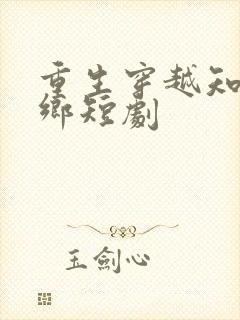 重生穿越知
鄉短劇
玉劍心